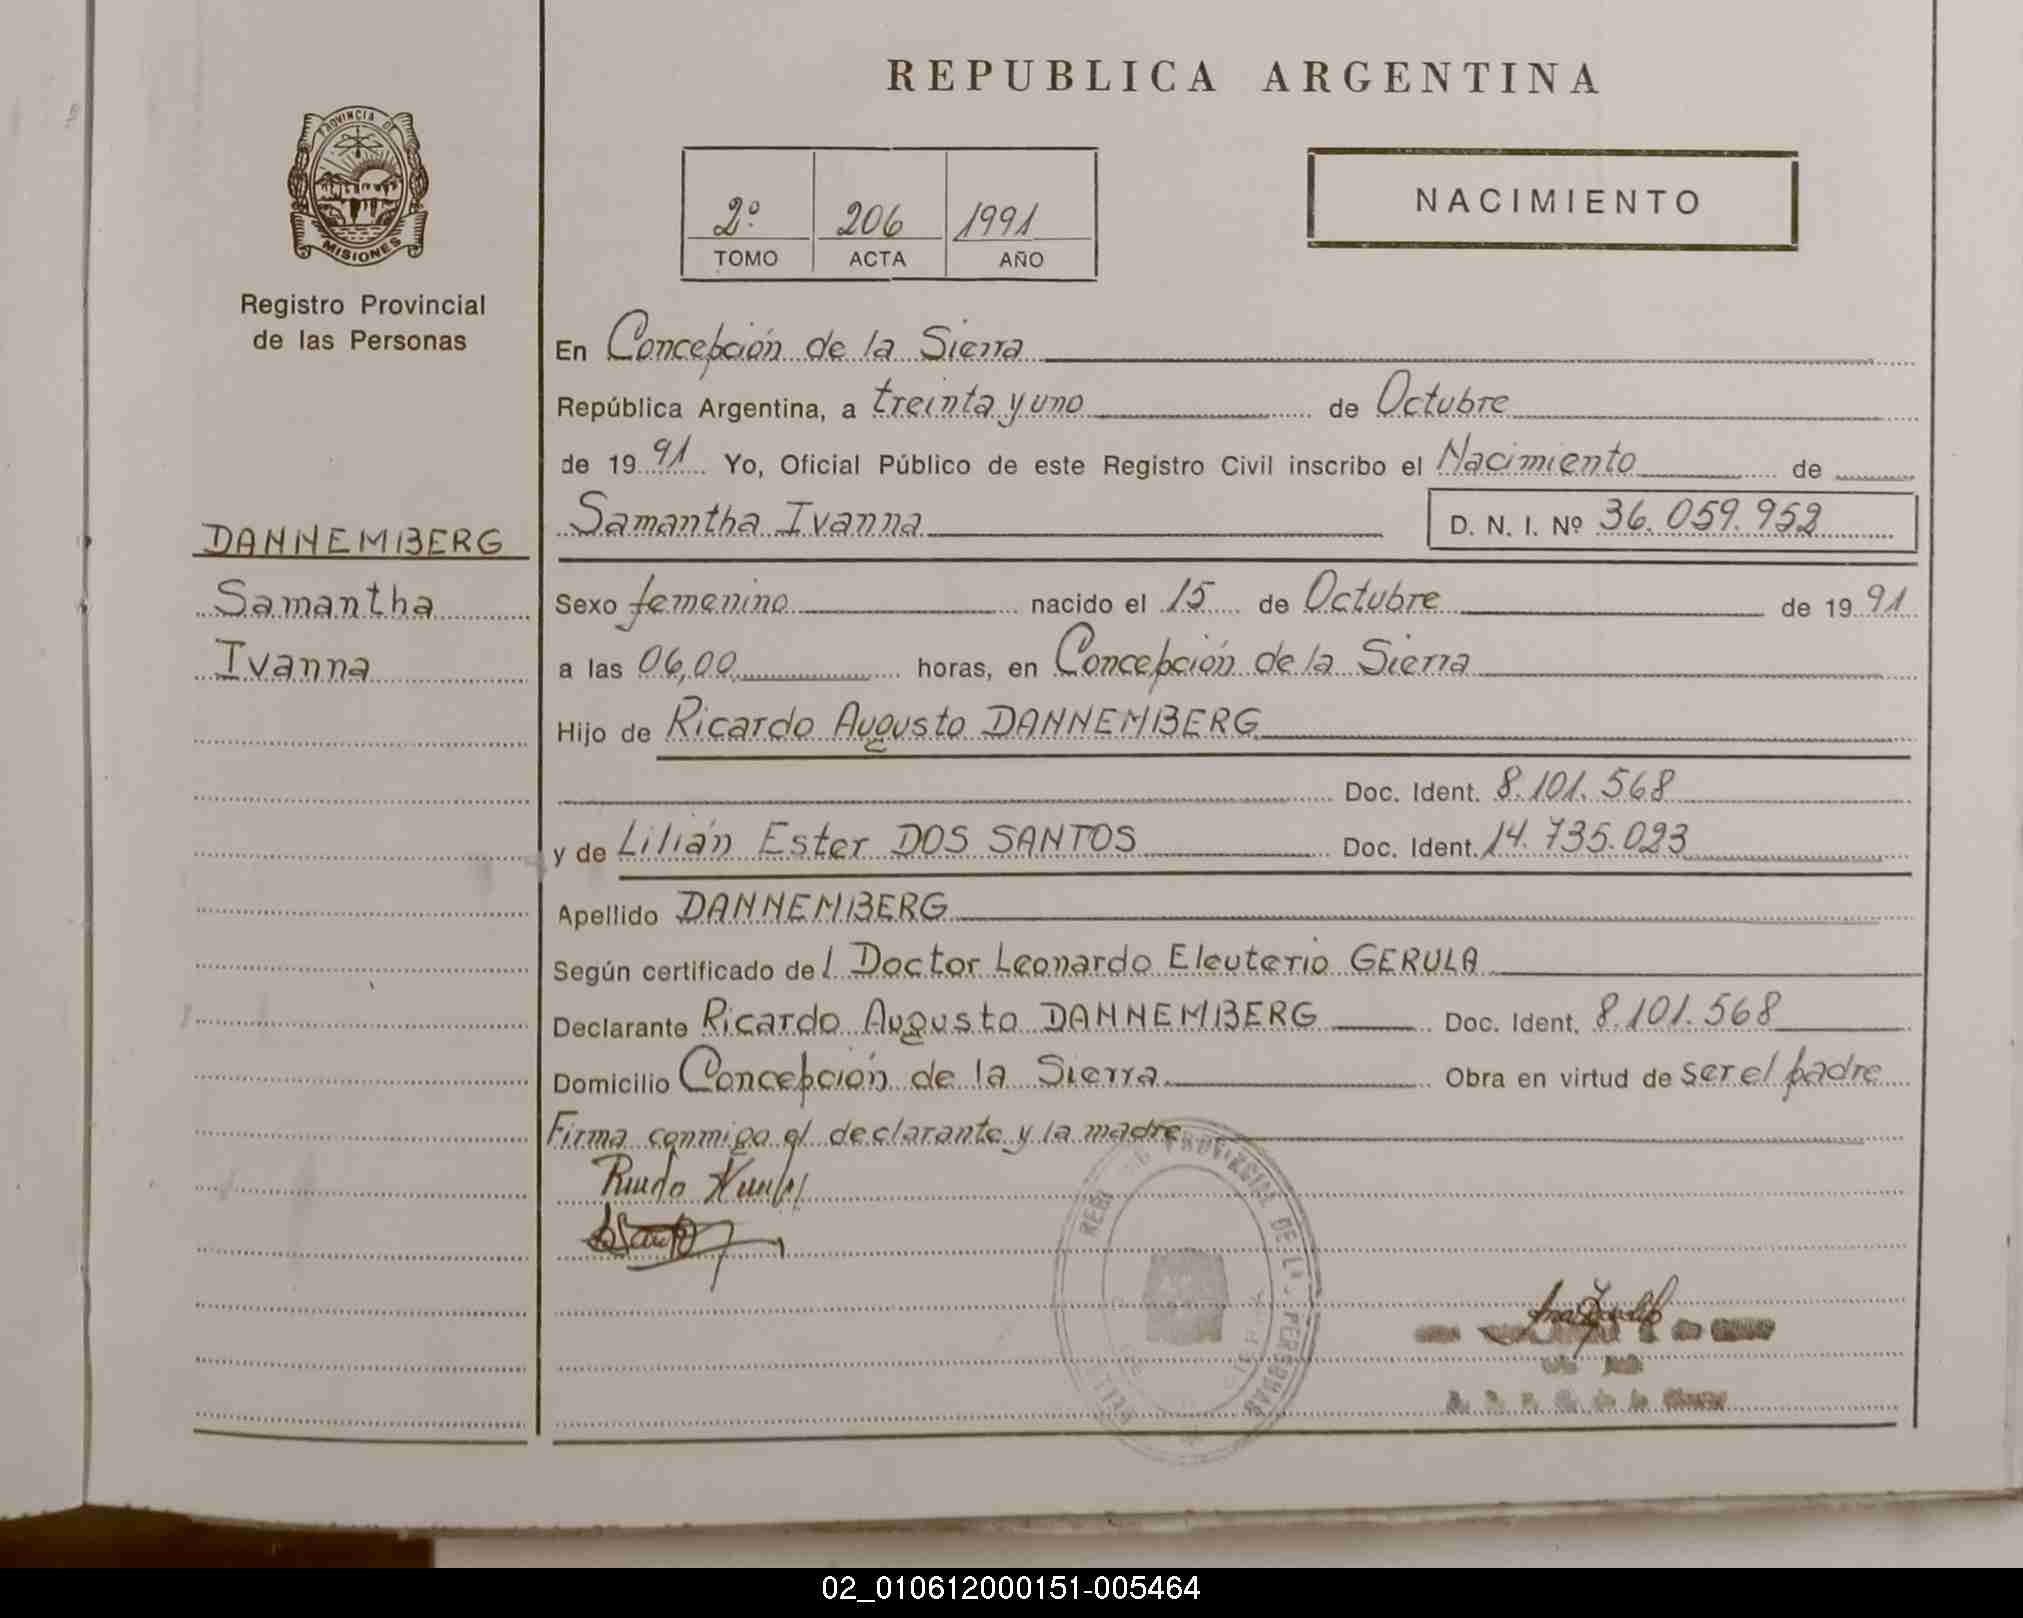 REPUBLICA ARGENTINA
PROVINCIA DE
MISIONES
Registro Provincial
de las Personas
2º 206 1991
TOMO ACTA AÑO
NACIMIENTO
En Concepción de la Sierra
República Argentina, a treinta y uno de Octubre
de 1991 Yo, Oficial Público de este Registro Civil inscribo el Nacimiento de
Samantha Ivanna D. N. I. Nº 36.059.952
DANNEMBERG
Samantha
Ivanna
Sexo femenino nacido el 15 de Octubre de 1991
a las 06,00 horas, en Concepción de la Sierra
Hijo de Ricardo Augusto DANNEMBERG
Doc. Ident. 8.101.568
y de Lilián Ester DOS SANTOS Doc. Ident. 14.735.023
Apellido DANNEMBERG
Según certificado del Doctor Leonardo Eleuterio GERULA
Declarante Ricardo Augusto DANNEMBERG Doc. Ident. 8.101.568
Domicilio Concepción de la Sierra Obra en virtud de ser el padre
Firma conmigo el declarante y la madre
PROVINCIAL DE LAS PERSONAS
02_010612000151-005464